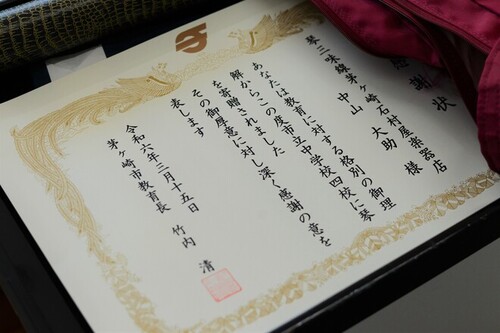 感謝状
琴三味線茅ヶ崎石村屋楽器店
中山 大助 様
あなたは教育に対する格別の御理
解からこの度市立中学校四校に琴
を寄贈されました
その御厚意に対し深く感謝の意を
表します
令和六年二月十五日
茅ヶ崎市教育長 竹内 清